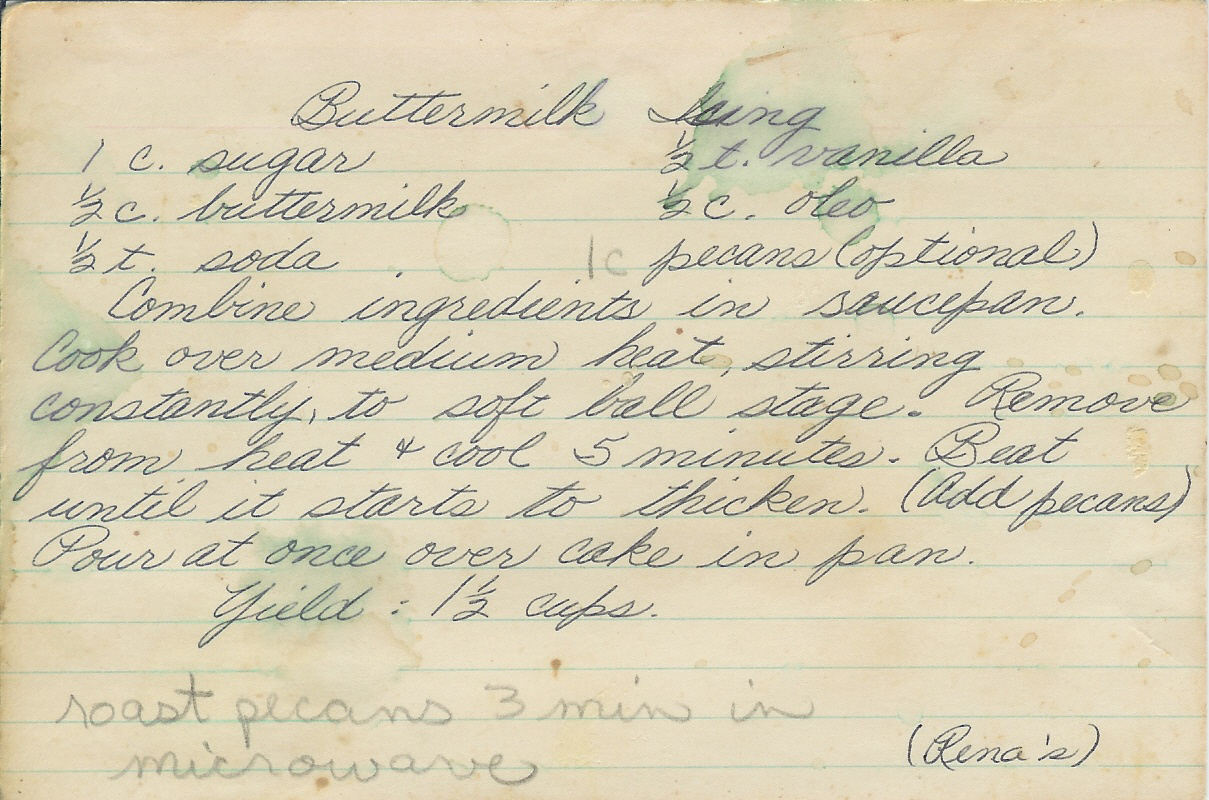 Buttermilk Icing
1 c. sugar ½ t. vanilla
½ c. buttermilk ½ c. oleo
½ t. soda 1c pecans (optional)
Combine ingredients in saucepan.
Cook over medium heat, stirring
constantly, to soft ball stage. Remove
from heat & cool 5 minutes. Beat
until it starts to thicken. (Add pecans)
Pour at once over cake in pan.
Yield: 1½ cups.
roast pecans 3 min in
microwave
(Rena's)